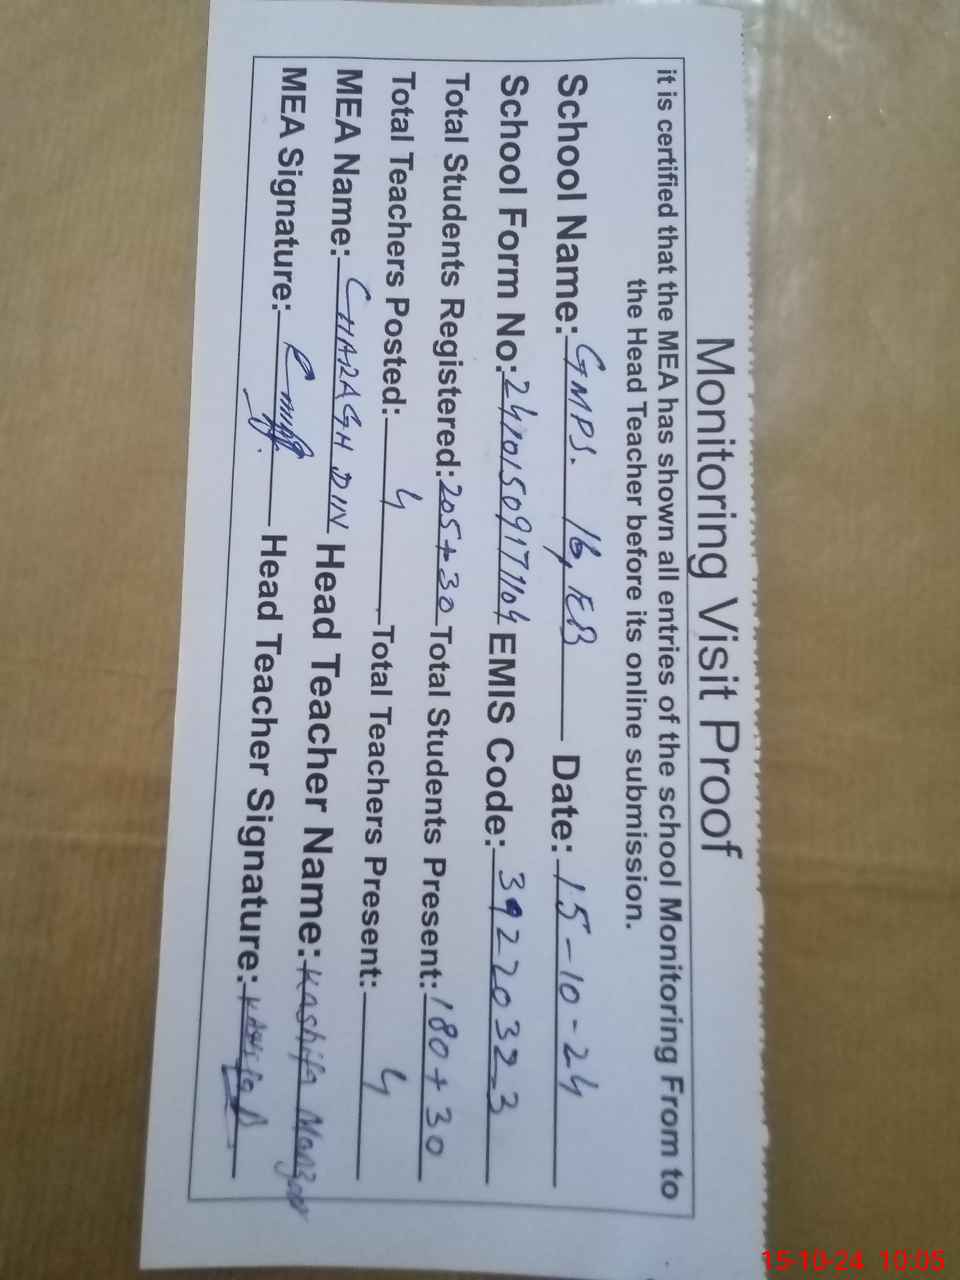 Monitoring Visit Proof
it is certified that the MEA has shown all entries of the school Monitoring From to
the Head Teacher before its online submission.
School Name: GMPS. 16, EB Date: 15-10-24
School Form No: EMIS Code: 39220323
Total Students Registered: 205+30 Total Students Present: 180+30
Total Teachers Posted: 4 Total Teachers Present: 4
MEA Name: CHARAGH DIN Head Teacher Name: Kashifa Manzoor
MEA Signature: Head Teacher Signature:
15-10-24 10:05